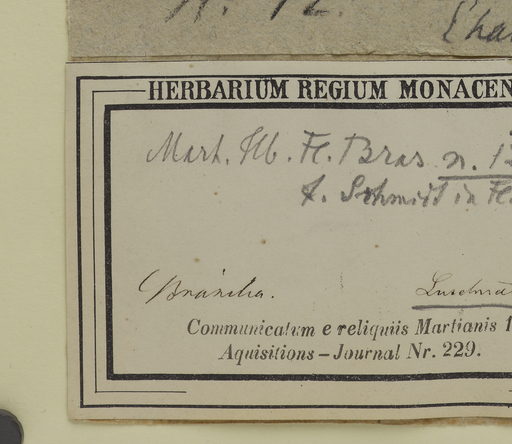 HERBARIUM REGIUM MONACEN
Mart. Hb. Fl. Bras n. 1
f. Schmidt in Fl.
Brasilia. Luschna
Communicatum e reliquiis Martianis 1
Aquisitions – Journal Nr. 229.